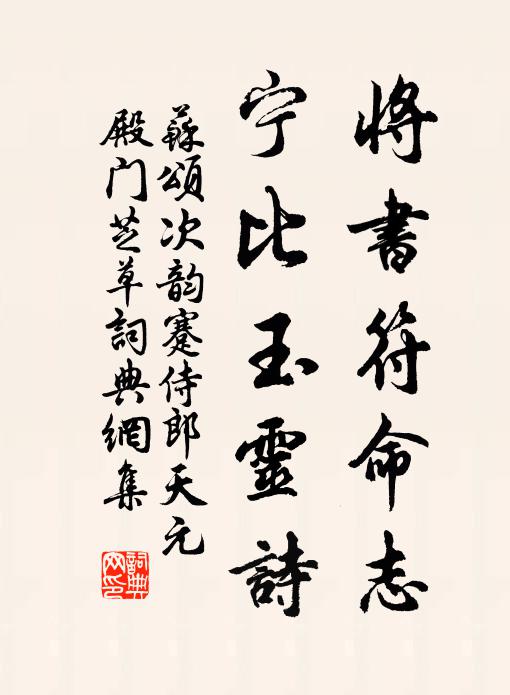 將書符命志
宁比玉靈詩
蘇頌次韵蹇侍郎天元
殿门芝草詞典網集
詞典网印